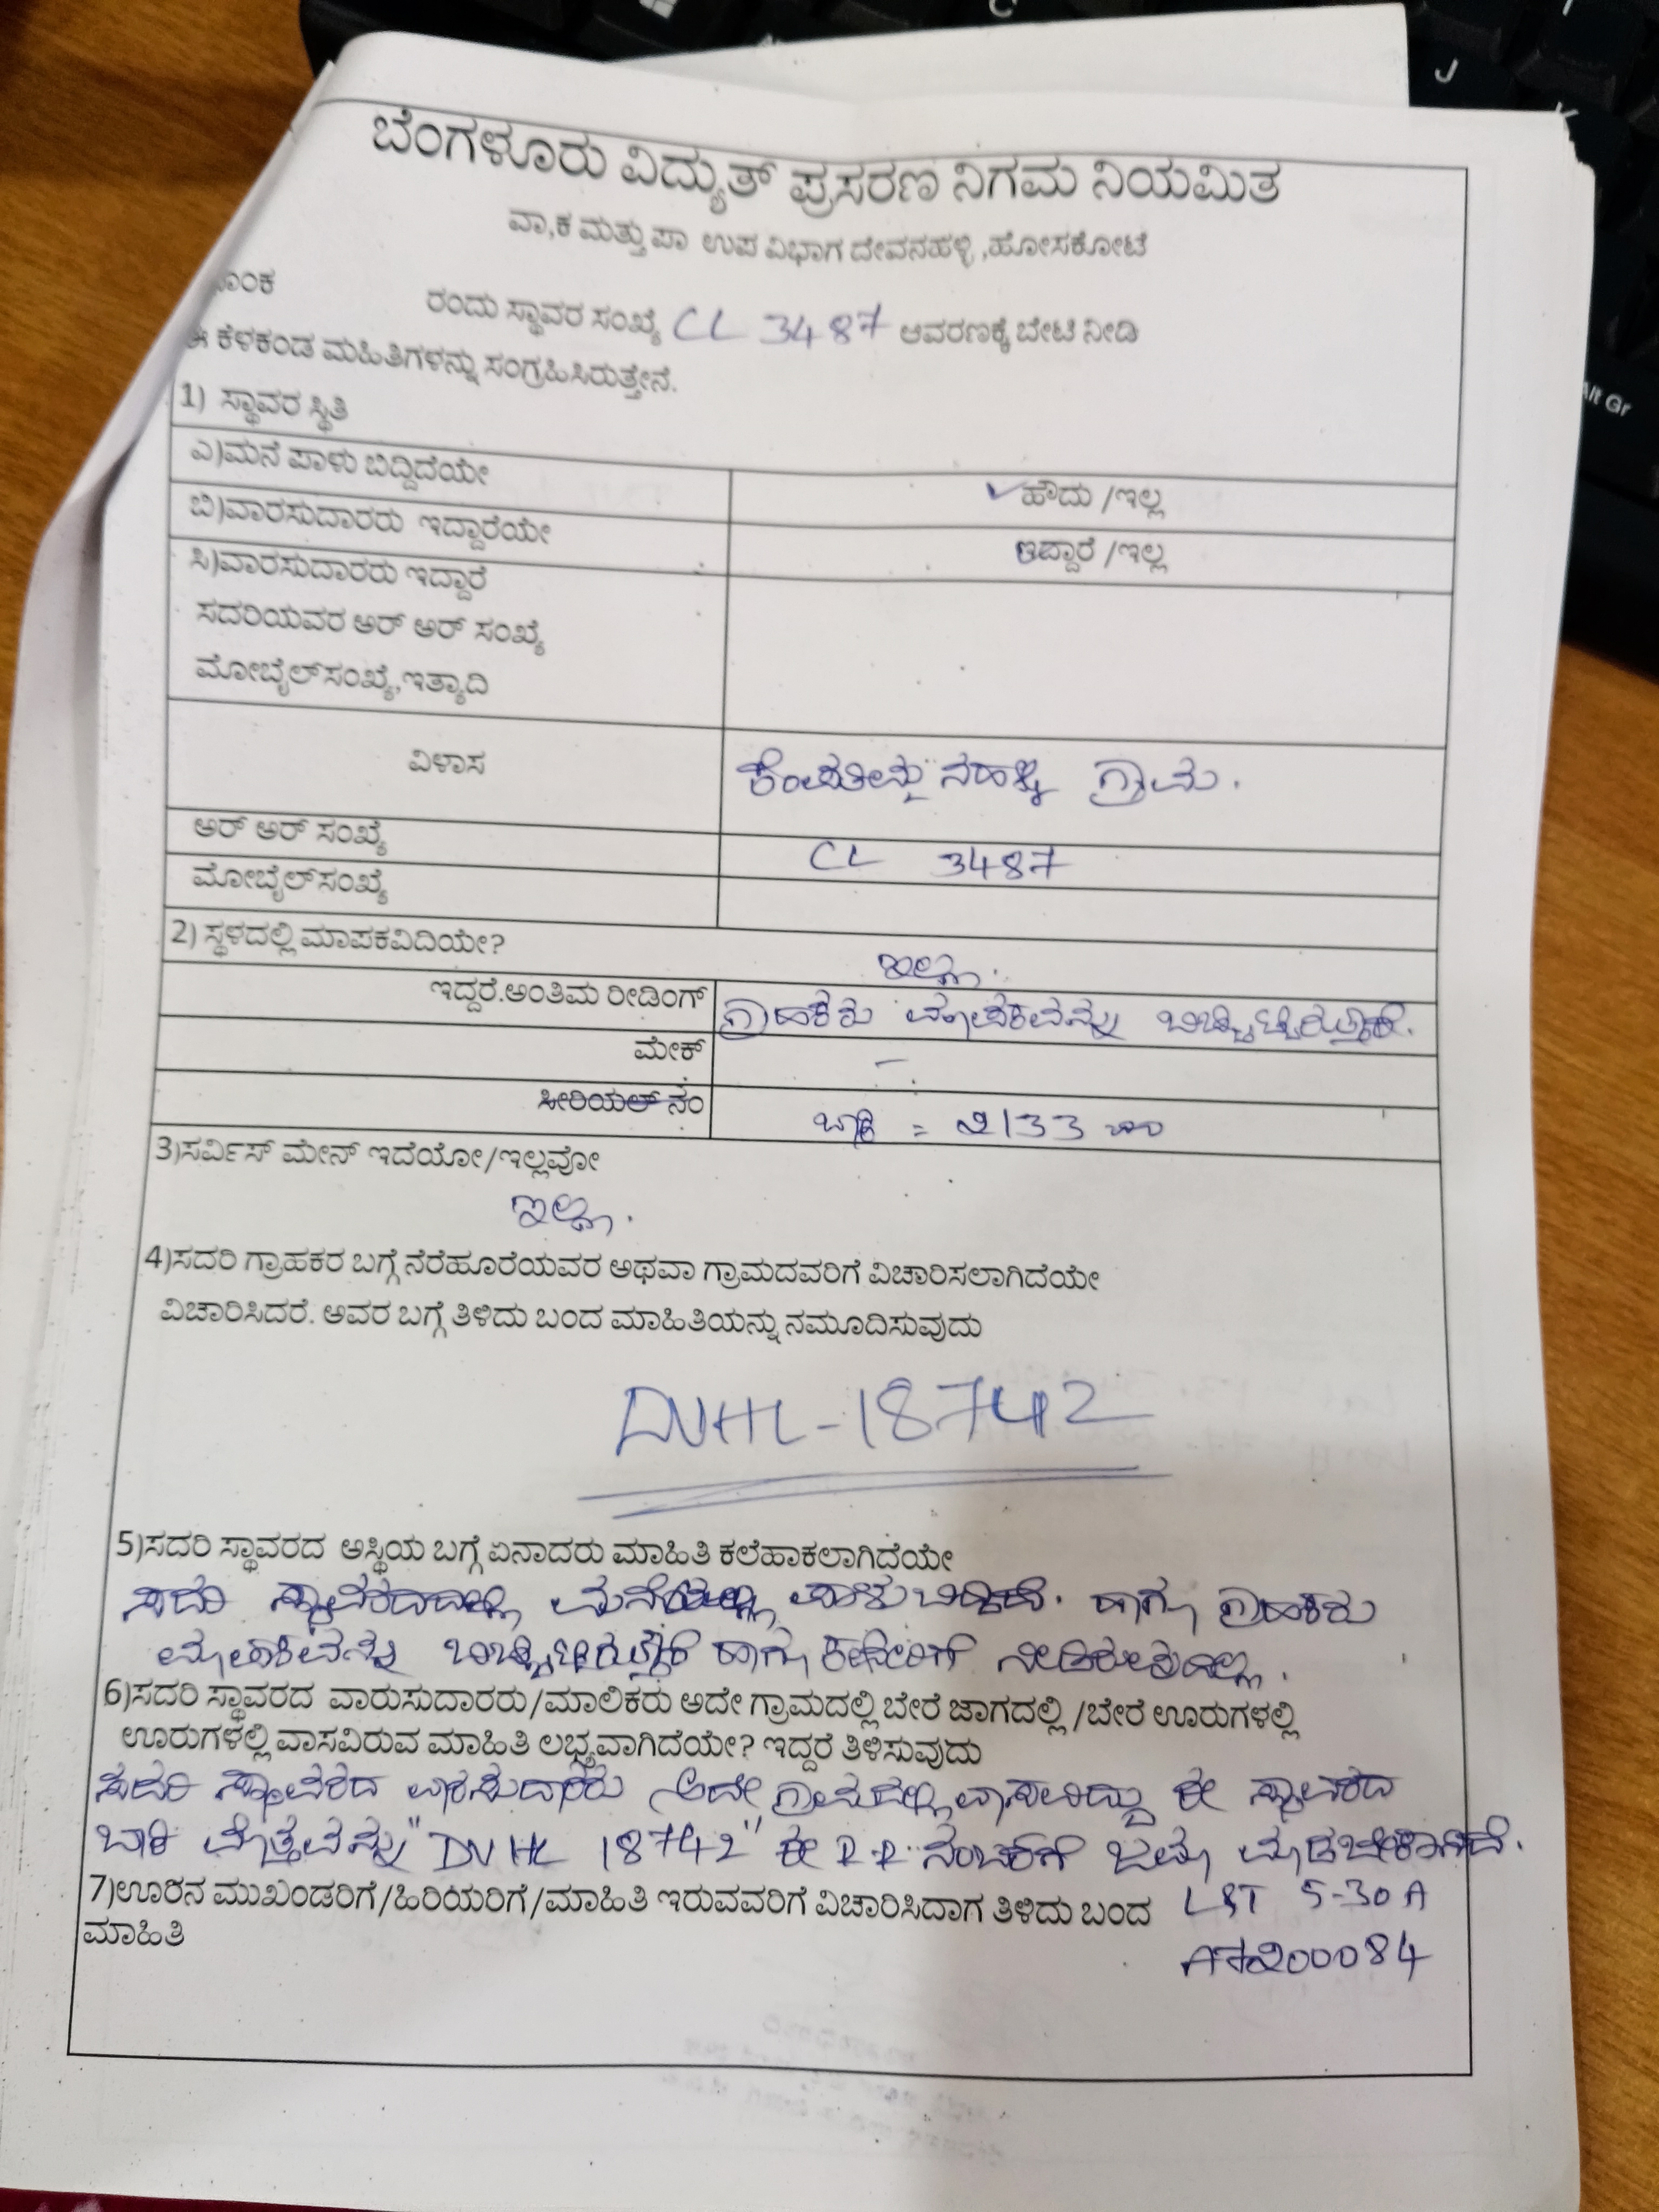 ಬೆಂಗಳೂರು ವಿದ್ಯುತ್ ಪ್ರಸರಣ ನಿಗಮ ನಿಯಮಿತ
ವಾ,ಕ ಮತ್ತು ಪಾ ಉಪ ವಿಭಾಗ ದೇವನಹಳ್ಳಿ ,ಹೋಸಕೋಟೆ
ರಂದು ಸ್ಥಾವರ ಸಂಖ್ಯೆ CL 3487 ಆವರಣಕ್ಕೆ ಬೇಟಿ ನೀಡಿ
ಈ ಕೆಳಕಂಡ ಮಹಿತಿಗಳನ್ನು ಸಂಗ್ರಹಿಸಿರುತ್ತೇನೆ.
1) ಸ್ಥಾವರ ಸ್ಥಿತಿ
ಎ)ಮನೆ ಪಾಳು ಬಿದ್ದಿದೆಯೇ ✓ ಹೌದು /ಇಲ್ಲ
ಬಿ)ವಾರಸುದಾರರು ಇದ್ದಾರೆಯೇ ಇದ್ದಾರೆ /ಇಲ್ಲ
ಸಿ)ವಾರಸುದಾರರು ಇದ್ದಾರೆ
ಸದರಿಯವರ ಅರ್ ಅರ್ ಸಂಖ್ಯೆ
ಮೋಬೈಲ್‌ಸಂಖ್ಯೆ,ಇತ್ಯಾದಿ
ವಿಳಾಸ ಗ್ರಾಮ.
ಅರ್ ಅರ್ ಸಂಖ್ಯೆ CL 3487
ಮೋಬೈಲ್‌ಸಂಖ್ಯೆ
2) ಸ್ಥಳದಲ್ಲಿ ಮಾಪಕವಿದಿಯೇ? ಇಲ್ಲ.
ಇದ್ದರೆ.ಅಂತಿಮ ರೀಡಿಂಗ್ ಗ್ರಾಹಕರು ಮಾಪಕವನ್ನು ಬಿಚ್ಚಿಟ್ಟಿರುತ್ತಾರೆ.
ಮೇಕ್ –
ಸೀರಿಯಲ್ ನಂ ಬಾಕಿ = 2133
3)ಸರ್ವಿಸ್ ಮೇನ್ ಇದೆಯೋ/ಇಲ್ಲವೋ
ಇಲ್ಲ.
4)ಸದರಿ ಗ್ರಾಹಕರ ಬಗ್ಗೆ ನೆರೆಹೂರೆಯವರ ಅಥವಾ ಗ್ರಾಮದವರಿಗೆ ವಿಚಾರಿಸಲಾಗಿದೆಯೇ
ವಿಚಾರಿಸಿದರೆ. ಅವರ ಬಗ್ಗೆ ತಿಳಿದು ಬಂದ ಮಾಹಿತಿಯನ್ನು ನಮೂದಿಸುವುದು
DVHL-18742
5)ಸದರಿ ಸ್ಥಾವರದ ಅಸ್ಥಿಯ ಬಗ್ಗೆ ಏನಾದರು ಮಾಹಿತಿ ಕಲೆಹಾಕಲಾಗಿದೆಯೇ
ಸದರಿ ಪಾಳುಬಿದ್ದಿದೆ. ಹಾಗು ಗ್ರಾಹಕರು
ಮಾಪಕವನ್ನು ಬಿಚ್ಚಿಟ್ಟಿರುತ್ತಾರೆ ಹಾಗು ಕಛೇರಿಗೆ ನೀಡಿರುವುದಿಲ್ಲ.
6)ಸದರಿ ಸ್ಥಾವರದ ವಾರುಸುದಾರರು/ಮಾಲಿಕರು ಅದೇ ಗ್ರಾಮದಲ್ಲಿ ಬೇರೆ ಜಾಗದಲ್ಲಿ /ಬೇರೆ ಊರುಗಳಲ್ಲಿ
ಊರುಗಳಲ್ಲಿ ವಾಸವಿರುವ ಮಾಹಿತಿ ಲಭ್ಯವಾಗಿದೆಯೇ? ಇದ್ದರೆ ತಿಳಿಸುವುದು
ಸದರಿ ಸ್ಥಾವರದ ವಾರಸುದಾರರು ಅದೇ ಗ್ರಾಮದಲ್ಲಿ ವಾಸವಿದ್ದು ಈ ಸ್ಥಾವರದ
ಬಾಕಿ ಮೊತ್ತವನ್ನು "DVHL 18742" ಈ R.R. ನಂಬರ್‌ಗೆ ಜಮಾ ಮಾಡಬೇಕಾಗಿದೆ.
7)ಊರಿನ ಮುಖಂಡರಿಗೆ/ಹಿರಿಯರಿಗೆ/ಮಾಹಿತಿ ಇರುವವರಿಗೆ ವಿಚಾರಿಸಿದಾಗ ತಿಳಿದು ಬಂದ L&T 5-30A
ಮಾಹಿತಿ